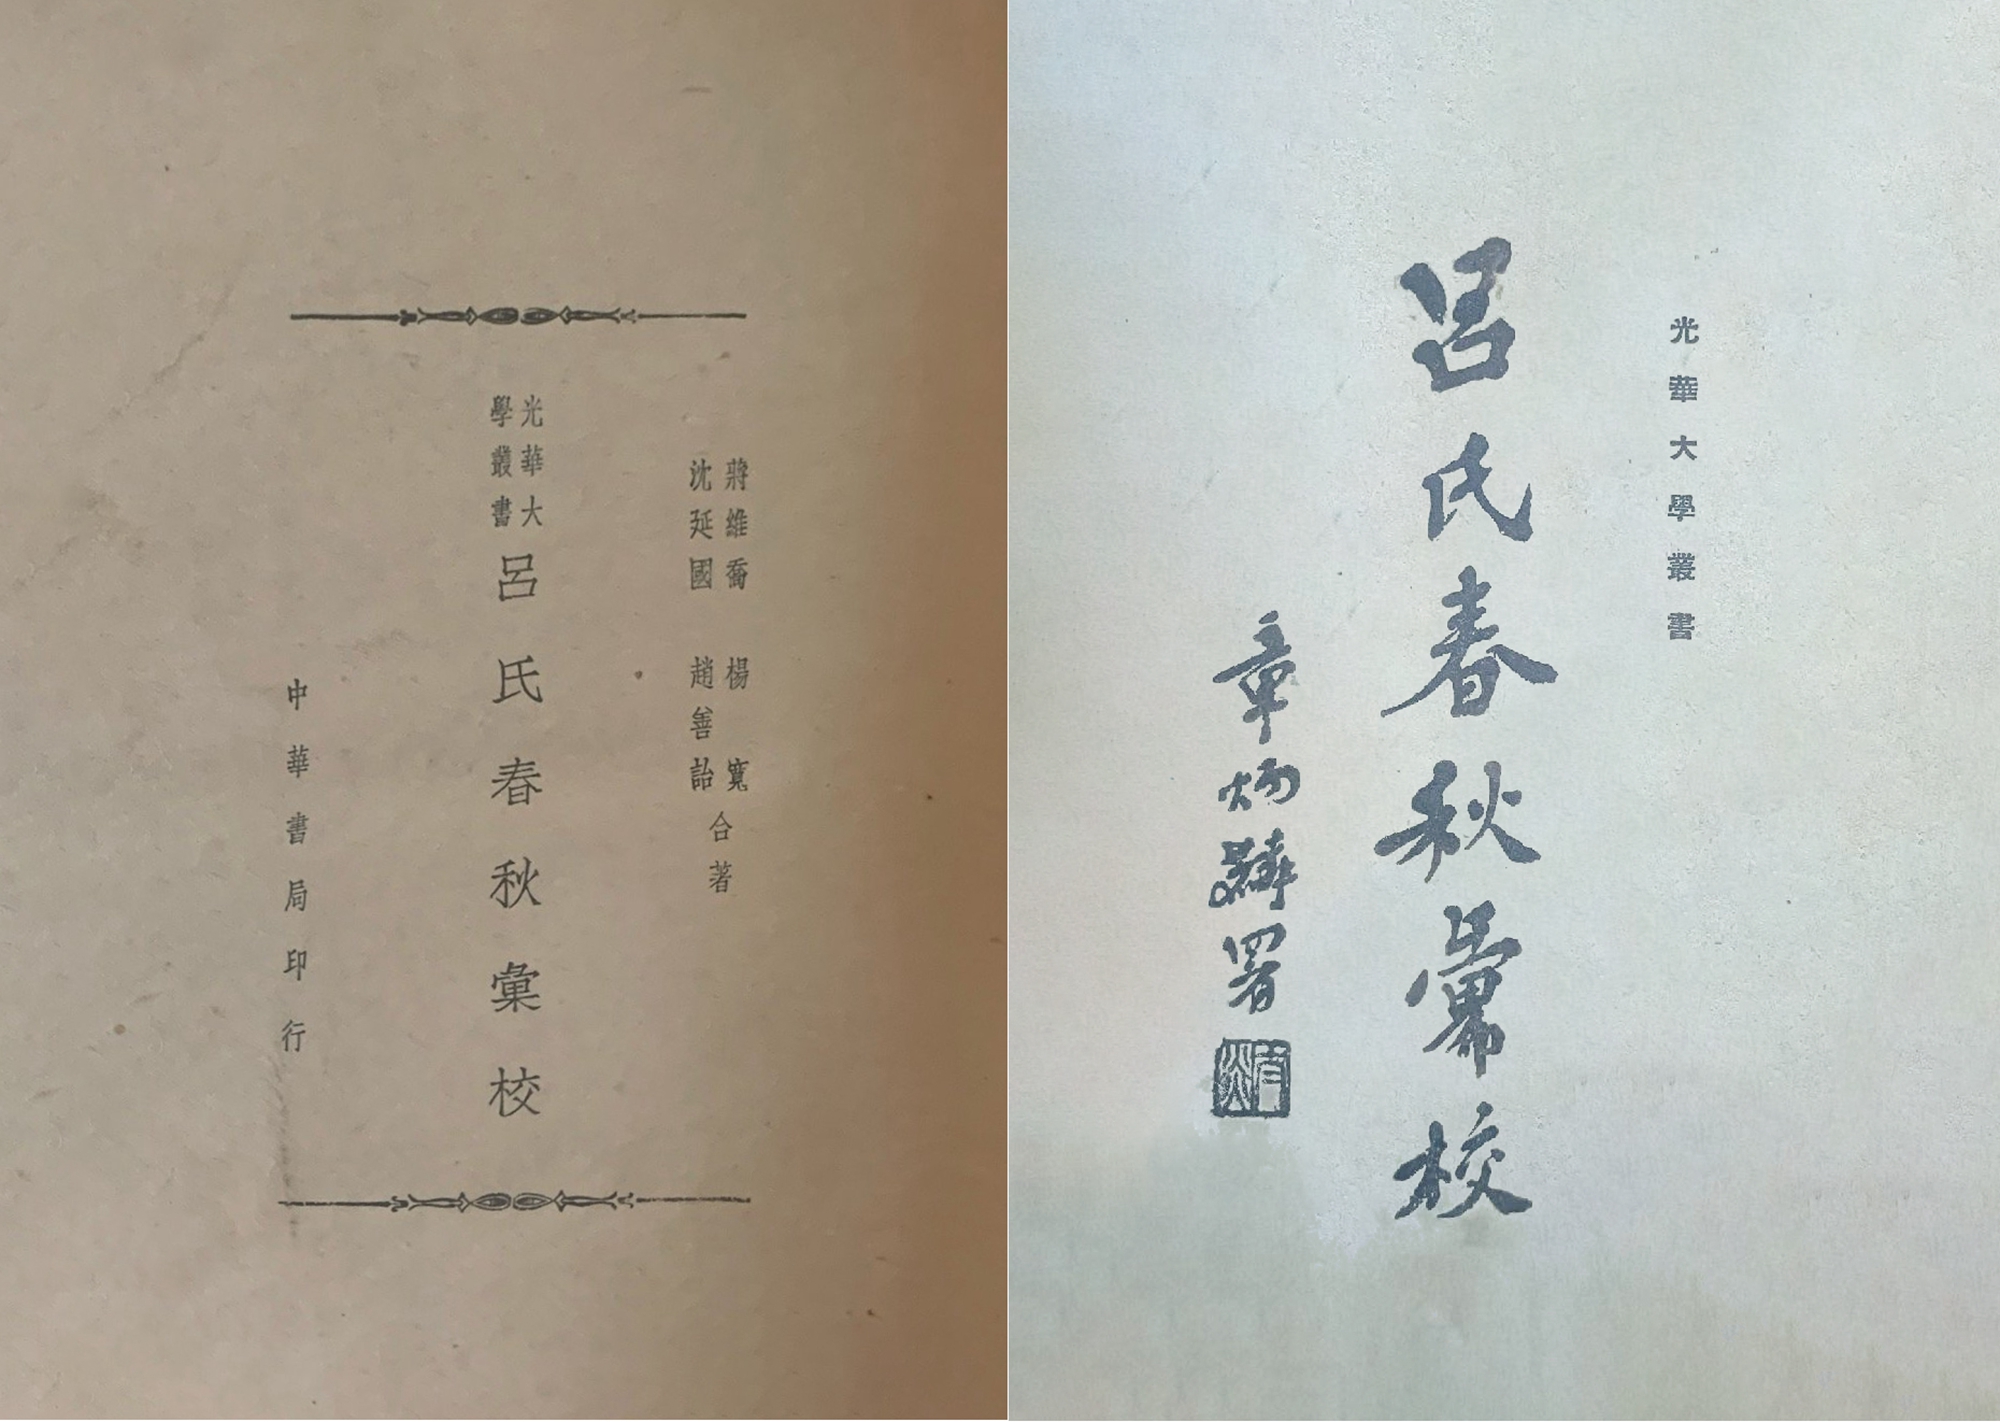 蔣維喬 楊 寬
沈延國 趙善詒
合著
光華大
學叢書
呂氏春秋彙校
中華書局印行
光華大學叢書
呂氏春秋彙校
章炳麟署